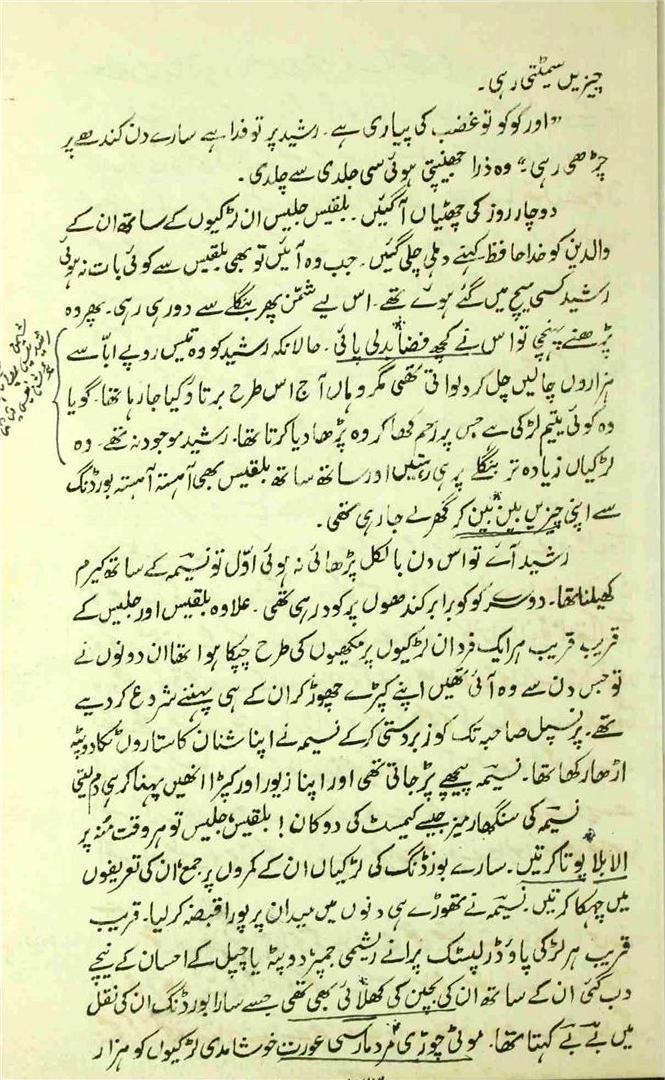 چیزیں سمیٹتی رہی۔
”اور کوکو تو غضب کی پیاری ہے۔ رشید پر تو فدا ہے سارے دن کندھے پر
چڑھی رہی۔“ وہ ذرا جھینپتی ہوئی سی جلدی سے چلدی۔
دو چار روز کی چھٹیاں آ گئیں۔ بلقیس جلیس ان لڑکیوں کے ساتھ ان کے
والدین کو خدا حافظ کہنے دہلی چلی گئیں۔ جب وہ آئیں تو بھی بلقیس سے کوئی بات نہ ہوئی
رشید کسی میچ میں گئے ہوئے تھے۔ اس لیے شمّن پھر بنگلے سے دور ہی رہی۔ پھر وہ
پڑھنے پہنچی تو اس نے کچھ فضا بدلی پائی۔ حالانکہ رشید کو وہ تیس روپے ابّا سے
ہزاروں چالیں چل کر دلواتی تھی مگر وہاں آج اس طرح برتاؤ کیا جا رہا تھا۔ گویا
وہ کوئی یتیم لڑکی ہے جس پر رحم کھا کر وہ پڑھا دیا کرتا تھا۔ رشید موجود نہ تھے۔ وہ
لڑکیاں زیادہ تر بنگلے پر ہی رہتیں اور ساتھ ساتھ بلقیس بھی آہستہ آہستہ بورڈنگ
سے اپنی چیزیں بین بین کر گھر لے جا رہی تھی۔
رشید آئے تو اس دن بالکل پڑھائی نہ ہوئی اوّل تو نسیمہ کے ساتھ کیرم
کھیلنا تھا۔ دوسر کوکو برابر کندھوں پر کود رہی تھی۔ علاوہ بلقیس اور جلیس کے
قریب قریب ہر ایک فرد ان لڑکیوں پر مکھیوں کی طرح چپکا ہوا تھا ان دونوں نے
تو جس دن سے وہ آئی تھیں اپنے کپڑے چھوڑ کر ان کے ہی پہننے شروع کر دیے
تھے۔ پرنسپل صاحبہ تک کو زبردستی کر کے نسیمہ نے اپنا شنان کا ستاروں ٹکا دوپٹہ
اڑھا رکھا تھا۔ نسیمہ پیچھے پڑ جاتی تھی اور اپنا زیور اور کپڑا انھیں پہنا کر ہی دم لیتی
نسیمہ کی سنگھار میز جیسے کیمسٹ کی دوکان! بلقیس، جلیس تو ہر وقت منہ پر
الا بلا پوتا کرتیں۔ سارے بورڈنگ کی لڑکیاں ان کے کمروں پر جمع، ان کی تعریفوں
میں چہکا کرتیں۔ نسیمہ نے تھوڑے ہی دنوں میں میدان پر پورا قبضہ کر لیا۔ قریب
قریب ہر لڑکی پاؤڈر لپسٹک پرانے ریشمی جمپر دوپٹہ یا چپل کے احسان کے نیچے
دب گئی ان کے ساتھ ان کی بچپن کی کھلائی بھی تھی جسے سارا بورڈنگ ان کی نقل
میں بے بے کہتا تھا۔ موٹی چوڑی مرد مار سی عورت خوشامدی لڑکیوں کو ہزار